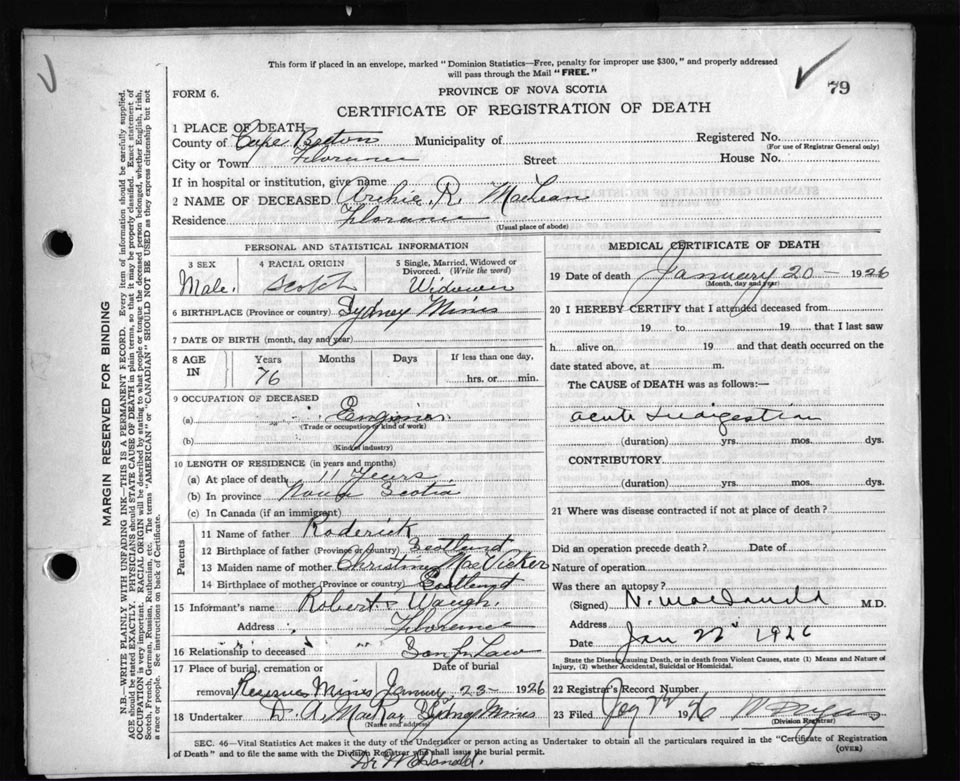 This form if placed in an envelope, marked "Dominion Statistics—Free, penalty for improper use $300," and properly addressed
will pass through the Mail "FREE."
79
FORM 6.
PROVINCE OF NOVA SCOTIA
CERTIFICATE OF REGISTRATION OF DEATH
1 PLACE OF DEATH
County of Cape Breton Municipality of Registered No.
(For use of Registrar General only)
City or Town Florence Street House No.
If in hospital or institution, give name
2 NAME OF DECEASED Archie. R. MacLean
Residence Florance
(Usual place of abode)
PERSONAL AND STATISTICAL INFORMATION
3 SEX 4 RACIAL ORIGIN 5 Single, Married, Widowed or Divorced. (Write the word)
Male. Scotch Widower
6 BIRTHPLACE (Province or country) Sydney Mines
7 DATE OF BIRTH (month, day and year)
8 AGE IN Years Months Days If less than one day,
76 hrs. or min.
9 OCCUPATION OF DECEASED
(a) Engineer
(Trade or occupation or kind of work)
(b)
(Kind of industry)
10 LENGTH OF RESIDENCE (in years and months)
(a) At place of death 11 Years
(b) In province Nova Scotia
(c) In Canada (if an immigrant)
Parents
11 Name of father Roderick
12 Birthplace of father (Province or country) Scotland
13 Maiden name of mother MacVicker
14 Birthplace of mother (Province or country)
15 Informant's name Robert Waugh
Address Florence
16 Relationship to deceased Son In Law
17 Place of burial, cremation or Date of burial
removal Reserve Mines January 23 - 1926
18 Undertaker D. A. MacKay Sydney Mines
(Name and address)
MEDICAL CERTIFICATE OF DEATH
19 Date of death January 20 - 1926
(Month, day and year)
20 I HEREBY CERTIFY that I attended deceased from
19 to 19 that I last saw
h alive on 19 and that death occurred on the
date stated above, at m.
The CAUSE of DEATH was as follows:—
acute Indigestion
(duration) yrs. mos. dys.
CONTRIBUTORY
(duration) yrs. mos. dys.
21 Where was disease contracted if not at place of death?
Did an operation precede death? Date of
Nature of operation
Was there an autopsy?
(Signed) N. MacDonald M.D.
Address
Date Jan 22 1926
State the Disease causing Death, or in death from Violent Causes, state (1) Means and Nature of
Injury, (2) whether Accidental, Suicidal or Homicidal.
22 Registrar's Record Number
23 Filed 1926
(Division Registrar)
SEC. 46—Vital Statistics Act makes it the duty of the Undertaker or person acting as Undertaker to obtain all the particulars required in the "Certificate of Registration
of Death" and to file the same with the Division Registrar who shall issue the burial permit. (OVER)
MARGIN RESERVED FOR BINDING
N.B.—WRITE PLAINLY WITH UNFADING INK—THIS IS A PERMANENT RECORD. Every item of information should be carefully supplied.
AGE should be stated EXACTLY. PHYSICIANS should STATE CAUSE OF DEATH in plain terms, so that it may be properly classified. Exact statement of
OCCUPATION is very important. RACIAL ORIGIN will be described by stating to what people or tongue the deceased person belonged, whether English, Irish,
Scotch, French, German, Russian, Ruthenian, etc. The terms "AMERICAN" or "CANADIAN" SHOULD NOT BE USED as they express citizenship but not
a race or people. See instructions on back of Certificate.